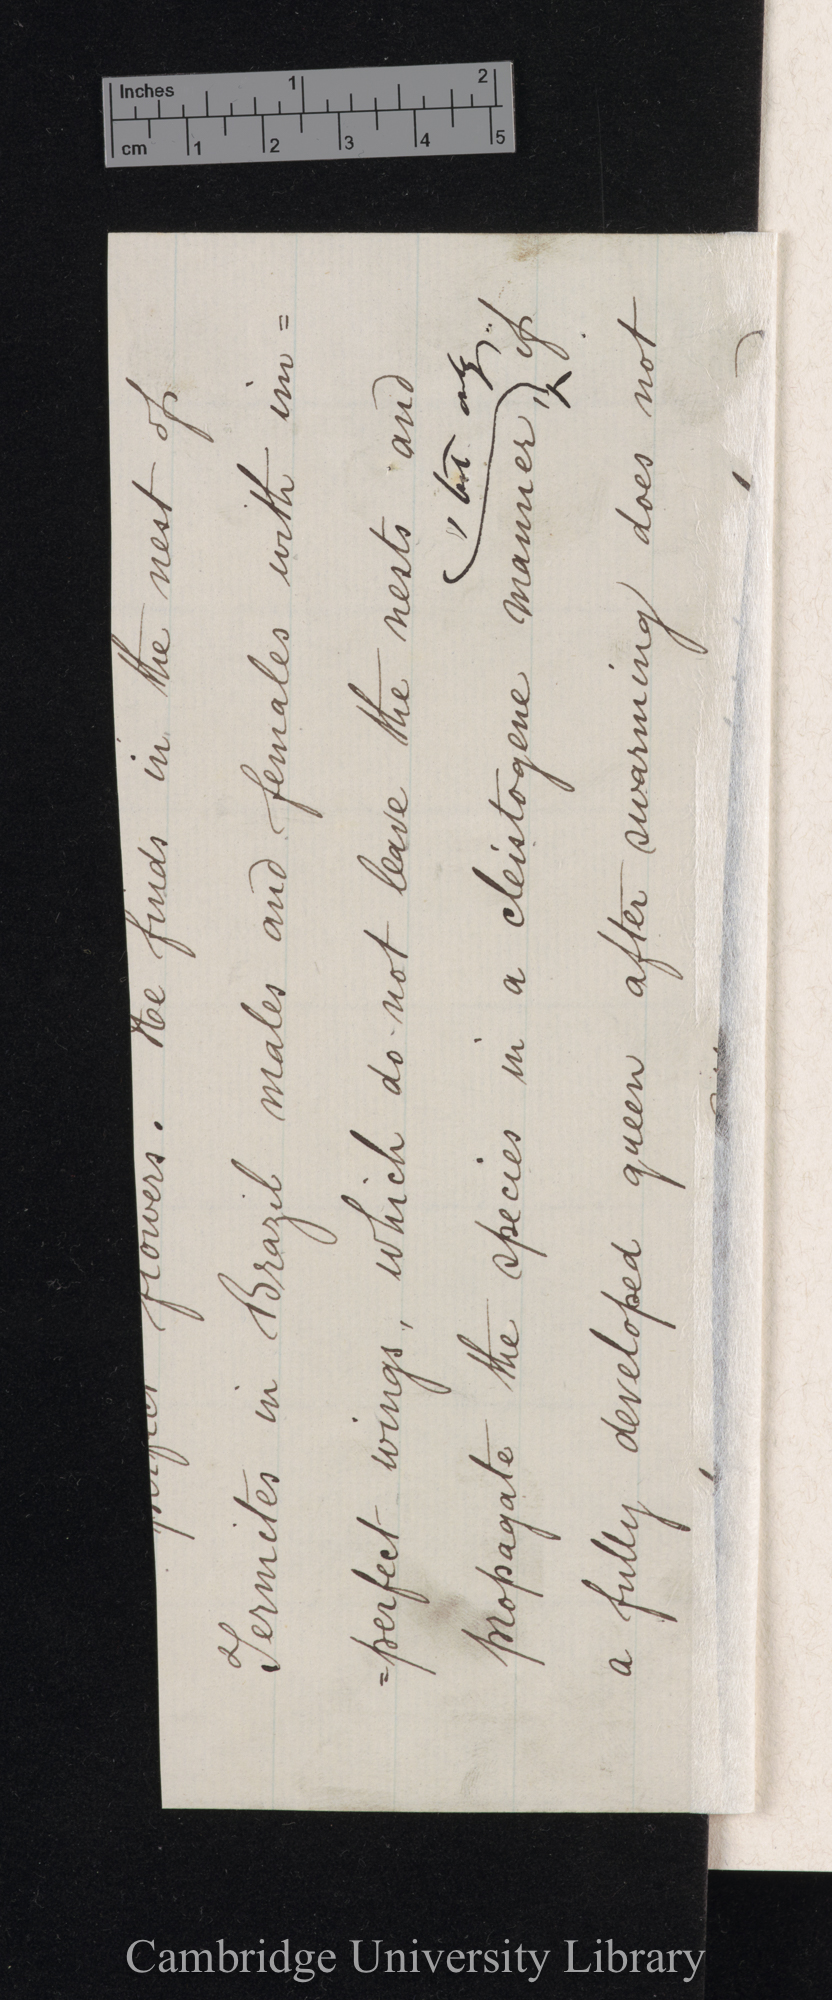 Inches 1 2
cm 1 2 3 4 5
perfect flowers. He finds in the nest of
Termites in Brazil males and females with im=
=perfect wings, which do not leave the nests and
" but only"
propagate the species in a cleistogene manner if
a fully developed queen after swarming does not
Cambridge University Library